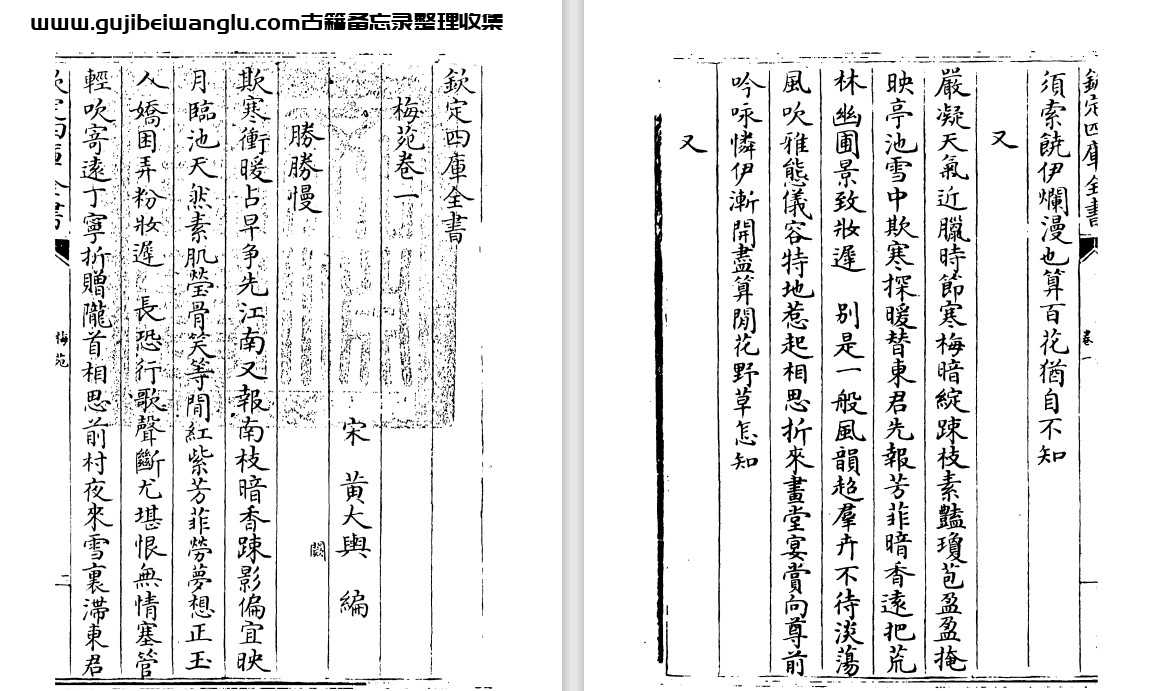 www.gujibeiwanglu.com古籍备忘录整理收集
欽定四庫全書
梅苑卷一
宋 黃大輿 編
勝勝慢 闕
欺寒衝暖占早争先江南又報南枝暗香踈影偏宜映
月臨池天然素肌瑩骨笑等閒紅紫芳菲勞夢想正玉
人嬌困弄粉妝遲 長恐行歌聲斷尤堪恨無情塞管
輕吹寄遠丁寧折贈隴首相思前村夜來雪裏滯東君
欽定四庫全書 梅苑 二
欽定四庫全書 卷一
須索饒伊爛漫也算百花猶自不知
又
嚴凝天氣近臘時節寒梅暗綻踈枝素豔瓊苞盈盈掩
映亭池雪中欺寒探暖替東君先報芳菲暗香遠把荒
林幽圃景致妝遲 别是一般風韻超羣卉不待淡蕩
風吹雅態儀容特地惹起相思折來畫堂宴賞向尊前
吟咏憐伊漸開盡算閒花野草怎知
又